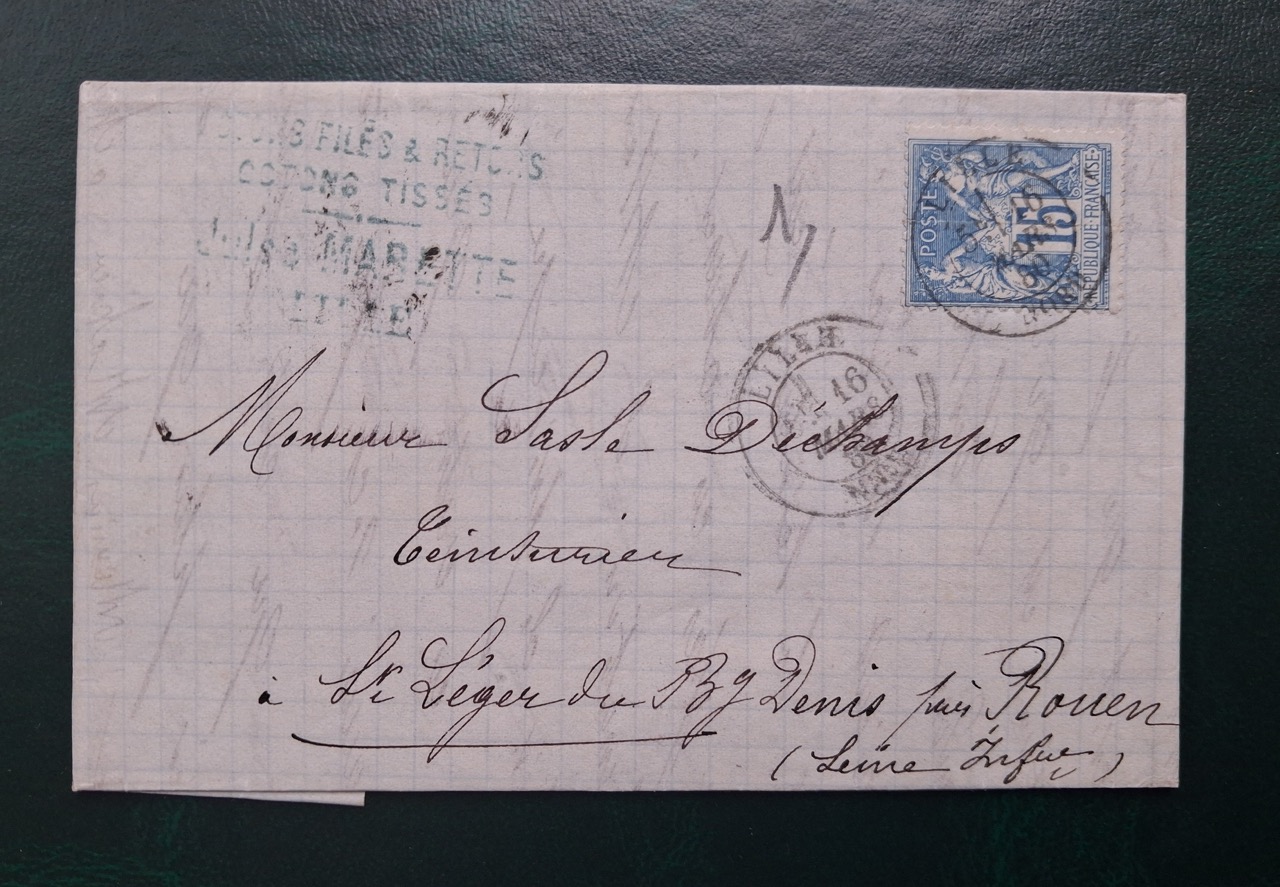 FILÉS & RETORS
COTONS TISSÉS
Jules MARETTE
POSTE
15
REPUBLIQUE FRANÇAISE
LILLE
16
MARS
80
NORD
LILLE
16
MARS
NORD
Monsieur Sasle Déchamps
Teinturier
à St Léger du Bg Denis près Rouen
(Seine Infre)